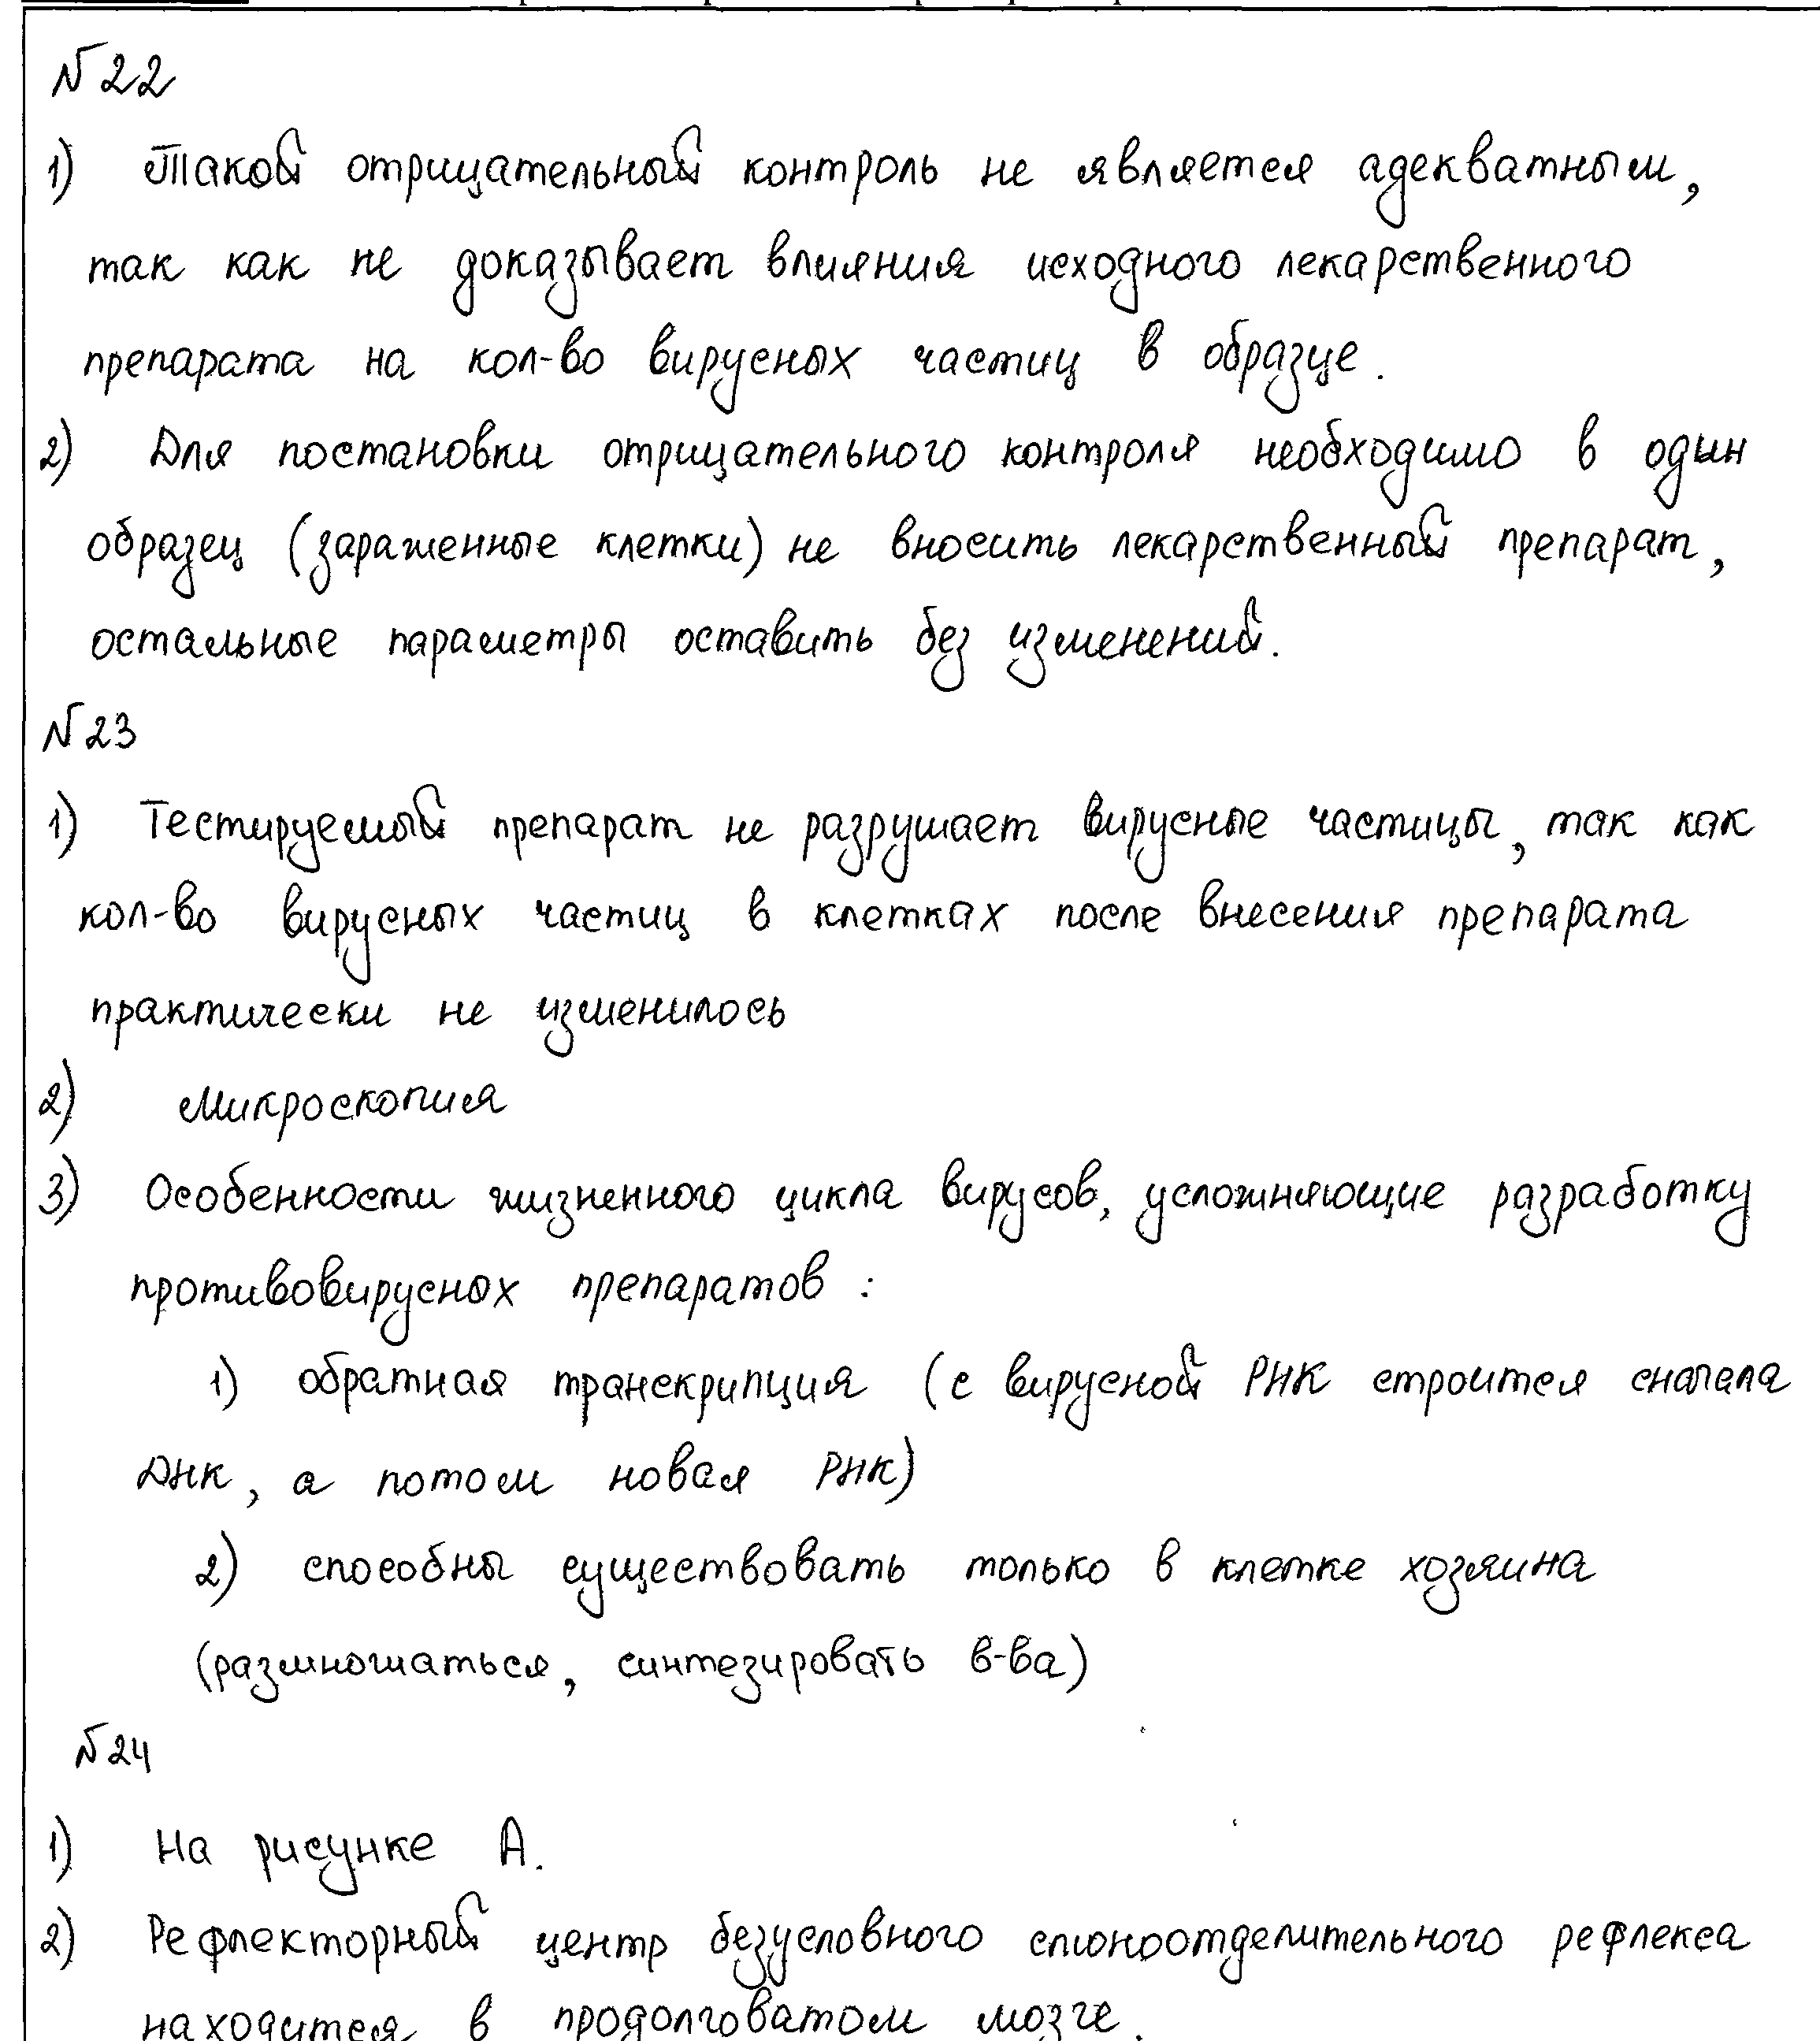 №22
1) Такой отрицательный контроль не является адекватным,
так как не доказывает влияния исходного лекарственного
препарата на кол-во вирусных частиц в образце.
2) Для постановки отрицательного контроля необходимо в один
образец (зараженные клетки) не вносить лекарственный препарат,
остальные параметры оставить без изменений.
№23
1) Тестируемый препарат не разрушает вирусные частицы, так как
кол-во вирусных частиц в клетках после внесения препарата
практически не изменилось
2) Микроскопия
3) Особенности жизненного цикла вирусов, усложняющие разработку
противовирусных препаратов:
1) обратная транскрипция (с вирусной РНК строится сначала
ДНК, а потом новая РНК)
2) способны существовать только в клетке хозяина
(размножаться, синтезировать в-ва)
№24
1) На рисунке А.
2) Рефлекторный центр безусловного слюноотделительного рефлекса
находится в продолговатом мозге.